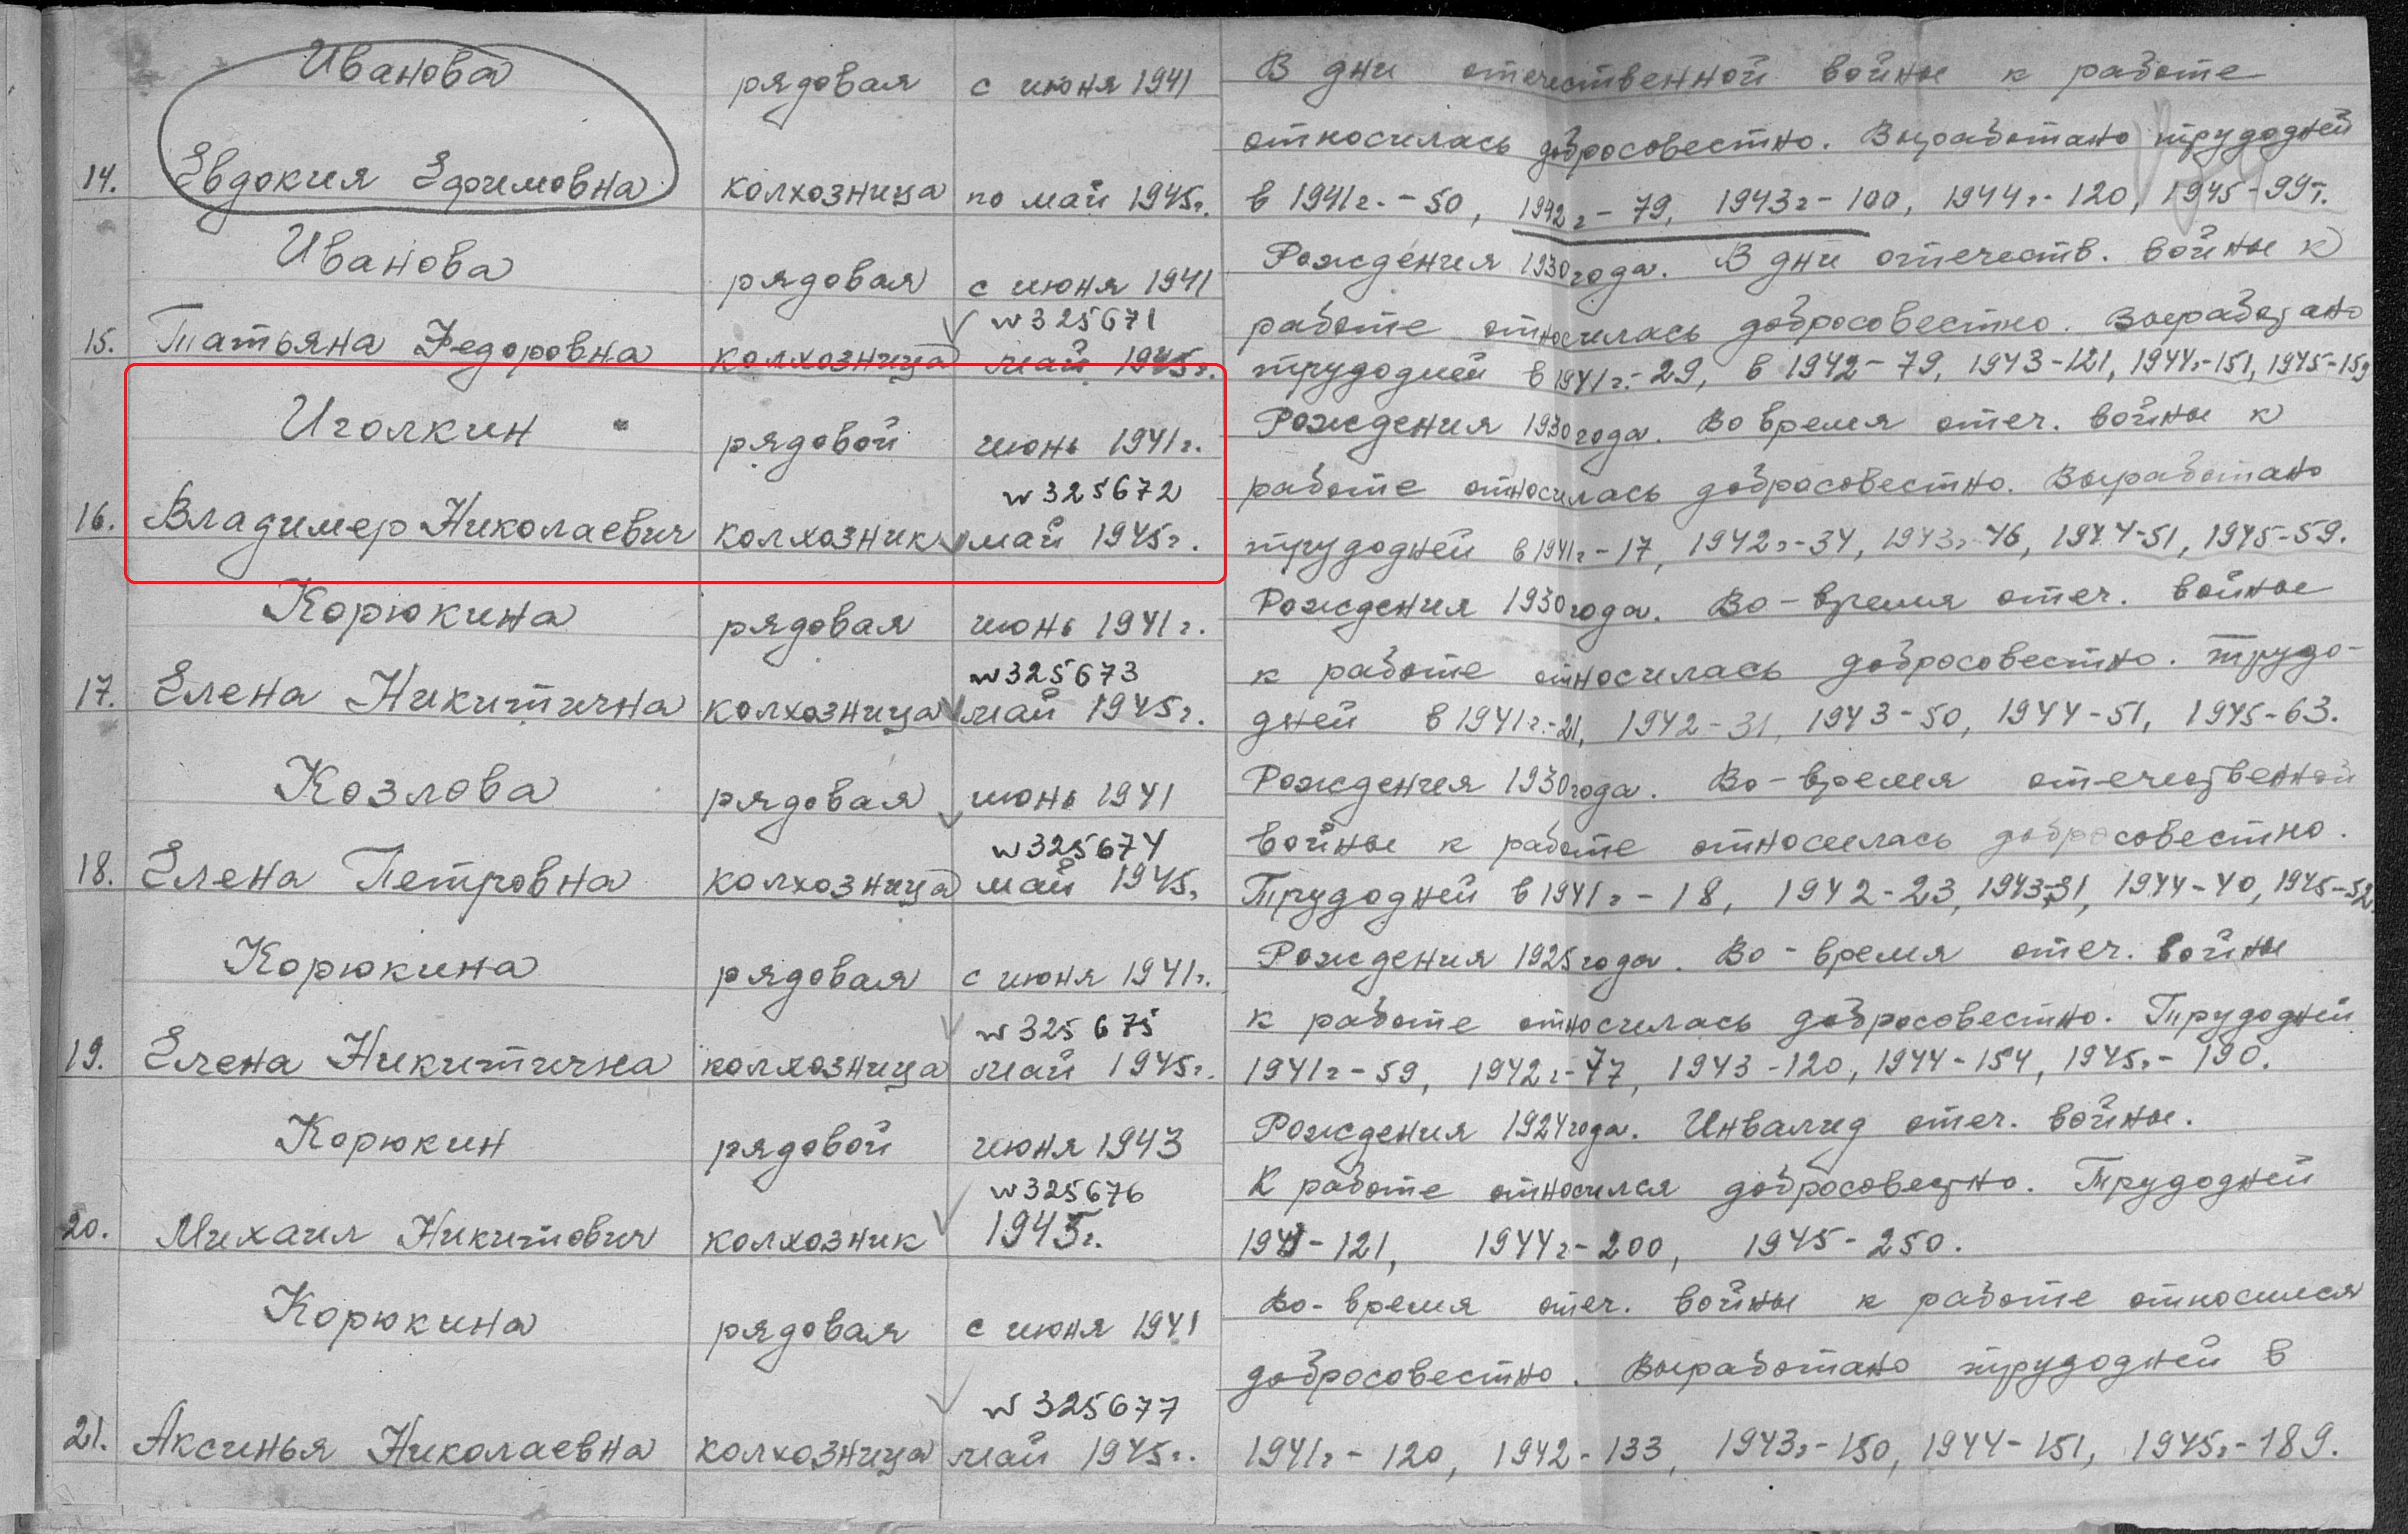 Иванова рядовая с июня 1941 В дни отечественной войны к работе
относилась добросовестно. Выработано трудодней
14. Евдокия Ефимовна колхозница по май 1945г. в 1941г. - 50, 1942г - 79, 1943г - 100, 1944г - 120, 1945 - 99т.
Иванова рядовая с июня 1941 Рождения 1930 года. В дни отечеств. войны к
w 325671 работе относилась добросовестно. Выработано
15. Татьяна Федоровна колхозница май 1945г. трудодней в 1941г. - 29, в 1942 - 79, 1943 - 121, 1944г. - 151, 1945 - 159
Иголкин рядовой июнь 1941г. Рождения 1930 года. Во время отеч. войны к
w 325672 работе относилась добросовестно. Выработано
16. Владимер Николаевич колхозник май 1945г. трудодней в 1941г - 17, 1942г - 34, 1943г - 46, 1944 - 51, 1945 - 59.
Корюкина рядовая июнь 1941г. Рождения 1930 года. Во-время отеч. войны
w 325673 к работе относилась добросовестно. Трудо-
17. Елена Никитична колхозница май 1945г. дней в 1941г. - 21, 1942 - 31, 1943 - 50, 1944 - 51, 1945 - 63.
Козлова рядовая июнь 1941 Рождения 1930 года. Во-время отечественной
w 325674 войны к работе относилась добросовестно.
18. Елена Петровна колхозница май 1945г. Трудодней в 1941г - 18, 1942 - 23, 1943 - 31, 1944 - 40, 1945 - 52.
Корюкина рядовая с июня 1941г. Рождения 1925 года. Во-время отеч. войны
w 325675 к работе относилась добросовестно. Трудодней
19. Елена Никитична колхозница май 1945г. 1941г - 59, 1942г - 77, 1943 - 120, 1944 - 154, 1945г. - 190.
Корюкин рядовой июня 1943 Рождения 1924 года. Инвалид отеч. войны.
w 325676 К работе относился добросовестно. Трудодней
20. Михаил Никитович колхозник 1945г. 1943 - 121, 1944г - 200, 1945 - 250.
Корюкина рядовая с июня 1941 Во-время отеч. войны к работе относился
w 325677 добросовестно. Выработано трудодней в
21. Аксинья Николаевна колхозница май 1945г. 1941г - 120, 1942 - 133, 1943г - 150, 1944 - 151, 1945г. - 189.